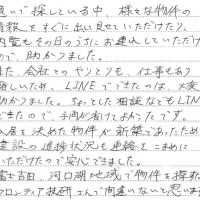 急いで探している中、様々な物件の
情報をすぐに出し見せていただけたり、
内覧もその日のうちにお連れしていただけ
ので、助かりました。
また、会社とのやりとりも、仕事もあり
難しいため、LINEでできたのは、大変
助かりました。ちょっとした相談などもLIN
できたので、手間が省けてよかったです。
入居を決めた物件が新築であったため
建設の進捗状況も連絡をこまめに
いただけたので安心できました。
富士吉田、河口湖地域で物件を探すな
フロンティア技研さんで間違いないと思いま